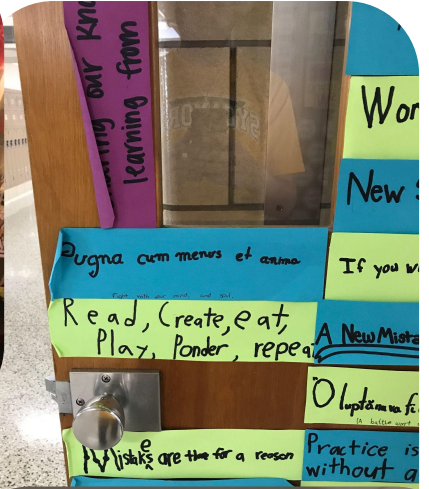 our kno
learning from
Wor
New
Pugna cum menus et anima
If you w
Read, Create, eat,
Play, Ponder, repeat
A New Mista
Mistake are ther for a reason
Practice is
without a